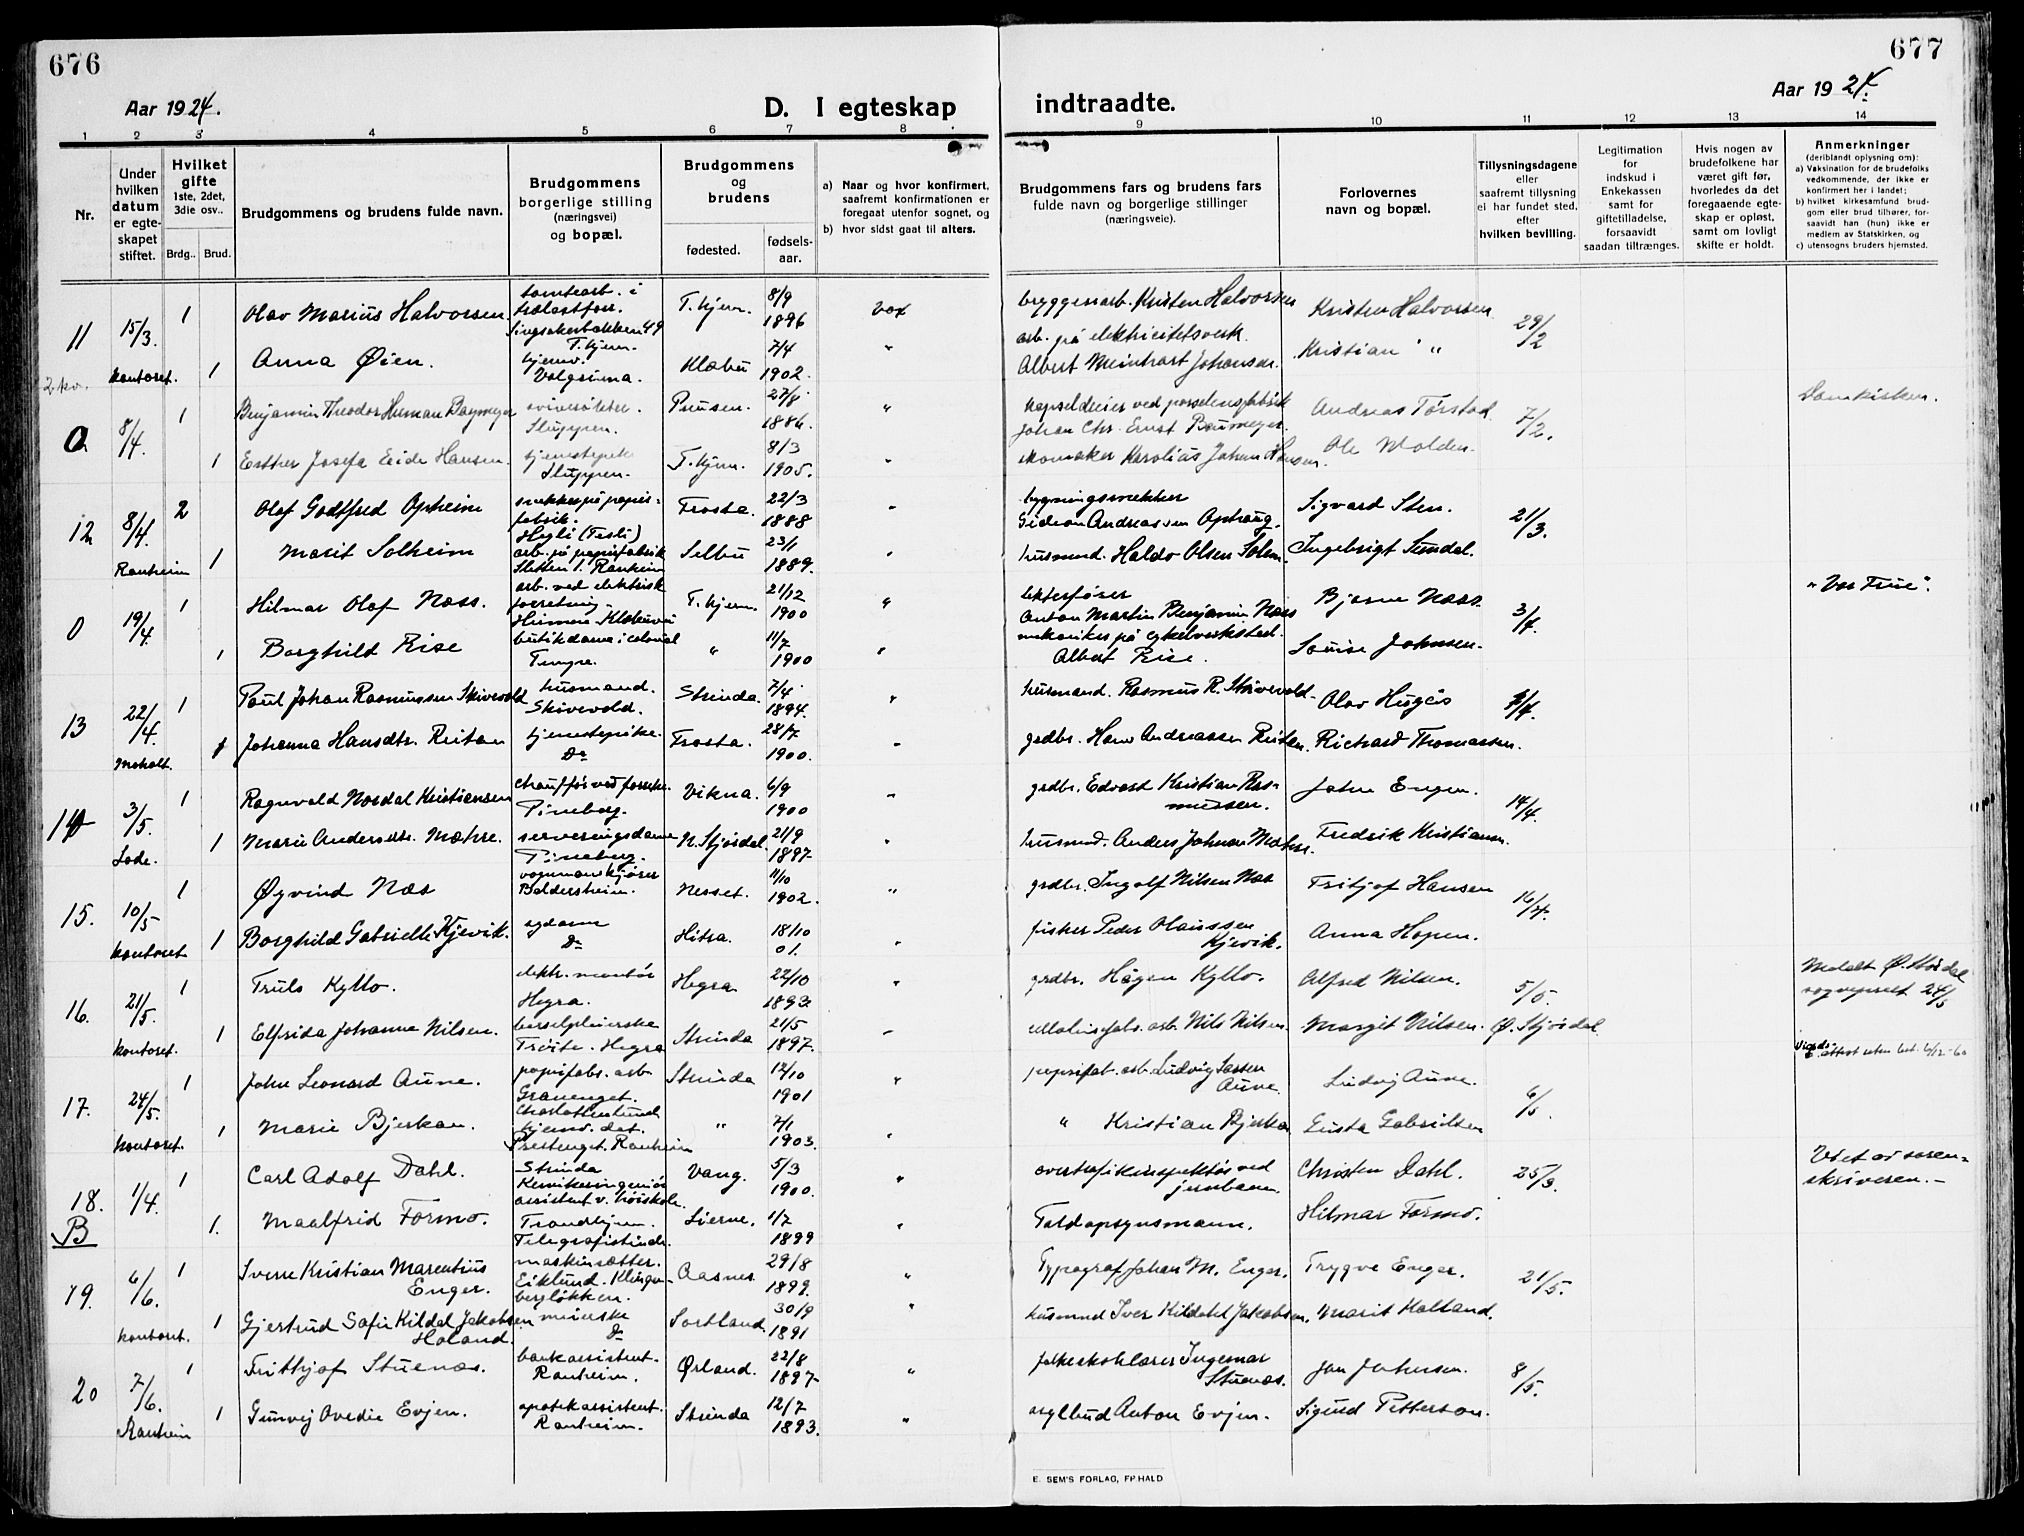 676
677
Aar 1924.
D. I egteskap
indtraadte.
Aar 1924.
1 2 3 4 5 6 7 8
9 10 11 12 13 14
Nr.
Under hvilken datum er egteskapet stiftet.
Hvilket gifte 1ste, 2det, 3die osv..
Brdg.. Brud.
Brudgommens og brudens fulde navn.
Brudgommens borgerlige stilling (næringsvei) og bopæl.
Brudgommens og brudens
fødested. fødsels-aar.
a) Naar og hvor konfirmert, saafremt konfirmationen er foregaat utenfor sognet, og
b) hvor sidst gaat til alters.
Brudgommens fars og brudens fars fulde navn og borgerlige stillinger (næringsveie).
Forlovernes navn og bopæl.
Tillysningsdagene eller saafremt tillysning ei har fundet sted, efter hvilken bevilling.
Legitimation for indskud i Enkekassen samt for giftetilladelse, forsaavidt saadan tiltrænges.
Hvis nogen av brudefolkene har været gift før, hvorledes da det foregaaende egteskap er opløst, samt om lovligt skifte er holdt.
Anmerkninger
(deriblandt oplysning om):
a) Vaksination for de brudefolks vedkommende, der ikke er konfirmert her i landet;
b) hvilket kirkesamfund brudgom eller brud tilhører, forsaavidt han (hun) ikke er medlem av Statskirken, og
c) utensogns bruders hjemsted.
11 15/3. 1 Olav Marius Halvorsen. tomtearb. i trælastforr. Singsakerbakken 49 T.hjem. T.hjem. 8/9 1896 bryggeriarb. Kristen Halvorsen Kristen Halvorsen 29/2
kontoret. 1 Anna Øien. hjemv. Klæbu 7/4 1902. " arb. på elektricitetsverk. Albert Meinhart Johansen. Kristian "
0 8/4. 1 Benjamin Theodor Herman Sluppen. 27/8 1886. " Johan Chr. Ernst Andreas 7/2. Domkirken.
1 Esther Josefa Eide Hansen. tjenestepike Sluppen. T.hjem. 8/3 1905. " skomaker Karolius Johan Hansen. Ole Molden.
12 8/4. 2 Olaf Godtfred Opheim fabrik. Frosta. 22/3 1888 " Gideon Andreassen Sigvard Sten. 21/3.
Ranheim 1 Marit Solheim arb. på papirfabrik Sletten p. Ranheim Selbu 23/1 1889. " husmand. Haldo Olsen Solem. Ingebrigt Sundal.
0 19/4. 1 Hilmar Olaf Næss. arb. ved elektrisk forretning. T.hjem. 21/12 1900 " Anton Martin Benjamin Næss Bjarne Næss. 3/4. "Vor Frue".
1 Borghild Rise butikdame i colonial Tempe. " 11/7 1900 " Albert Rise. Louise Johnsen.
13 22/4. 1 Paul Johan Rasmussen Skivevold husmand. Skivevold. Strinda. 7/4. 1894. " husmand. Rasmus R. Skivevold. Olav 4/4.
Moholt. 1 Johanna Hansdtr. Reitan tjenestepike. Do Frosta. 28/7 1900. " grdbr. Hans Andreassen Reitan. Richard Thomassen.
14 3/5. 1 Ragnvald Nordal Kristiansen Pineberg. Vikna. 6/9 1900 " grdbr. Edvard Kristian Rasmussen. John Engen. 14/4.
Lade. 1 Marie Andersdtr. Mæhre. serveringsdame Pineberg. N. Stjørdal. 21/9 1897. " husmd. Anders Johnsen Mæhre. Fredrik Kristiansen.
15. 10/5 1 Øyvind Næs vognmandskjører Baldersheim. Nesset. 11/10 1902. " grdbr. Ingolf Nilsen Næs Fritjof Hansen 16/4.
kontoret 1 Borghild Gabrielle Kjevik. Do Hitra. 18/10 01. " fisker Peder Olaussen Kjevik. Anna Hopen.
16. 21/5. 1 Truls Kyllo. elektr. montør Hegra. Hegra 22/10 1893. " grdbr. Hågen Kyllo. Alfred Nilsen. 5/5. Meldt Ø. Stjørdal sogneprest 24/5
kontoret. 1 Elfrida Johanne Nilsen. barselpleierske Hegra Strinda 21/5 1897. " arb. Nils Nilsen. Margit Nilsen. Ø. Stjørdal.
17. 24/5. 1 John Leonard Aune. papirfabr. arb. Charlottenlund Strinda 12/10 1901 " papirfab. arb. Ludvig Larsen Aune. Ludvig Aune. 6/5.
kontoret. 1 Marie Bjerkan. Prestenget. Ranheim " 7/1 1903. " " Kristian Bjerkan Gusta Gabrielsen
18. B 1/4. 1 Carl Adolf Dahl. Strinda Kemikeringeniør assistent v. høiskolen. Vang. 5/3 1900. " overtrafikinspektør ved jernbanen. Christen Dahl. 25/3. Viet av sorenskriveren.
1. Maalfrid Formo. Trondhjem. Telegrafistinde. Lierne. 1/7 1899 " Toldopsynsmann. Hilmar Formo.
19. 6/6. 1 Sverre Kristian Marentius Enger. maskinsætter. Eiklund. Aasnes 29/8 1899. " Typograf Johan M. Enger. Trygve Enger. 21/5.
kontoret. 1 Gjertrud Sofie Kildal Jakobsen Holand. Do Sortland. 30/9 1891 " husmand Iver Kildahl Jakobsen. Marit Holland.
20 7/6. 1 Frithjof Stuenæs. bankassistent. Ranheim. Ørland. 22/8 1897. " folkeskolelærer Ingemar Stuenæs. 8/5.
Ranheim 1 Gunvej Ovedie Evjen. apotekassistent. Ranheim. Strinda 12/7 1893. " asylbud Anton Evjen. Sigurd Petterson.
E. SEM'S FORLAG, FR.HALD